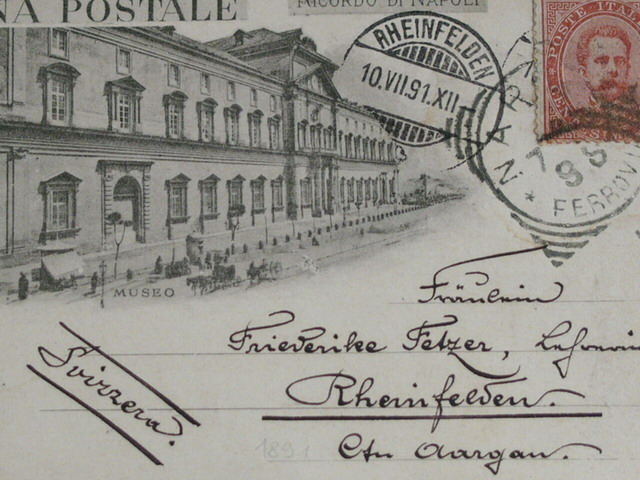 NA POSTALE
RICORDO DI NAPOLI
RHEINFELDEN
10.VII.91.XII
POSTE ITAL
NAP
FERROV
MUSEO
Fräulein
Friederike Fetzer, Lehrerin
Rheinfelden.
Ctn Aargau.
Svizzera.
189